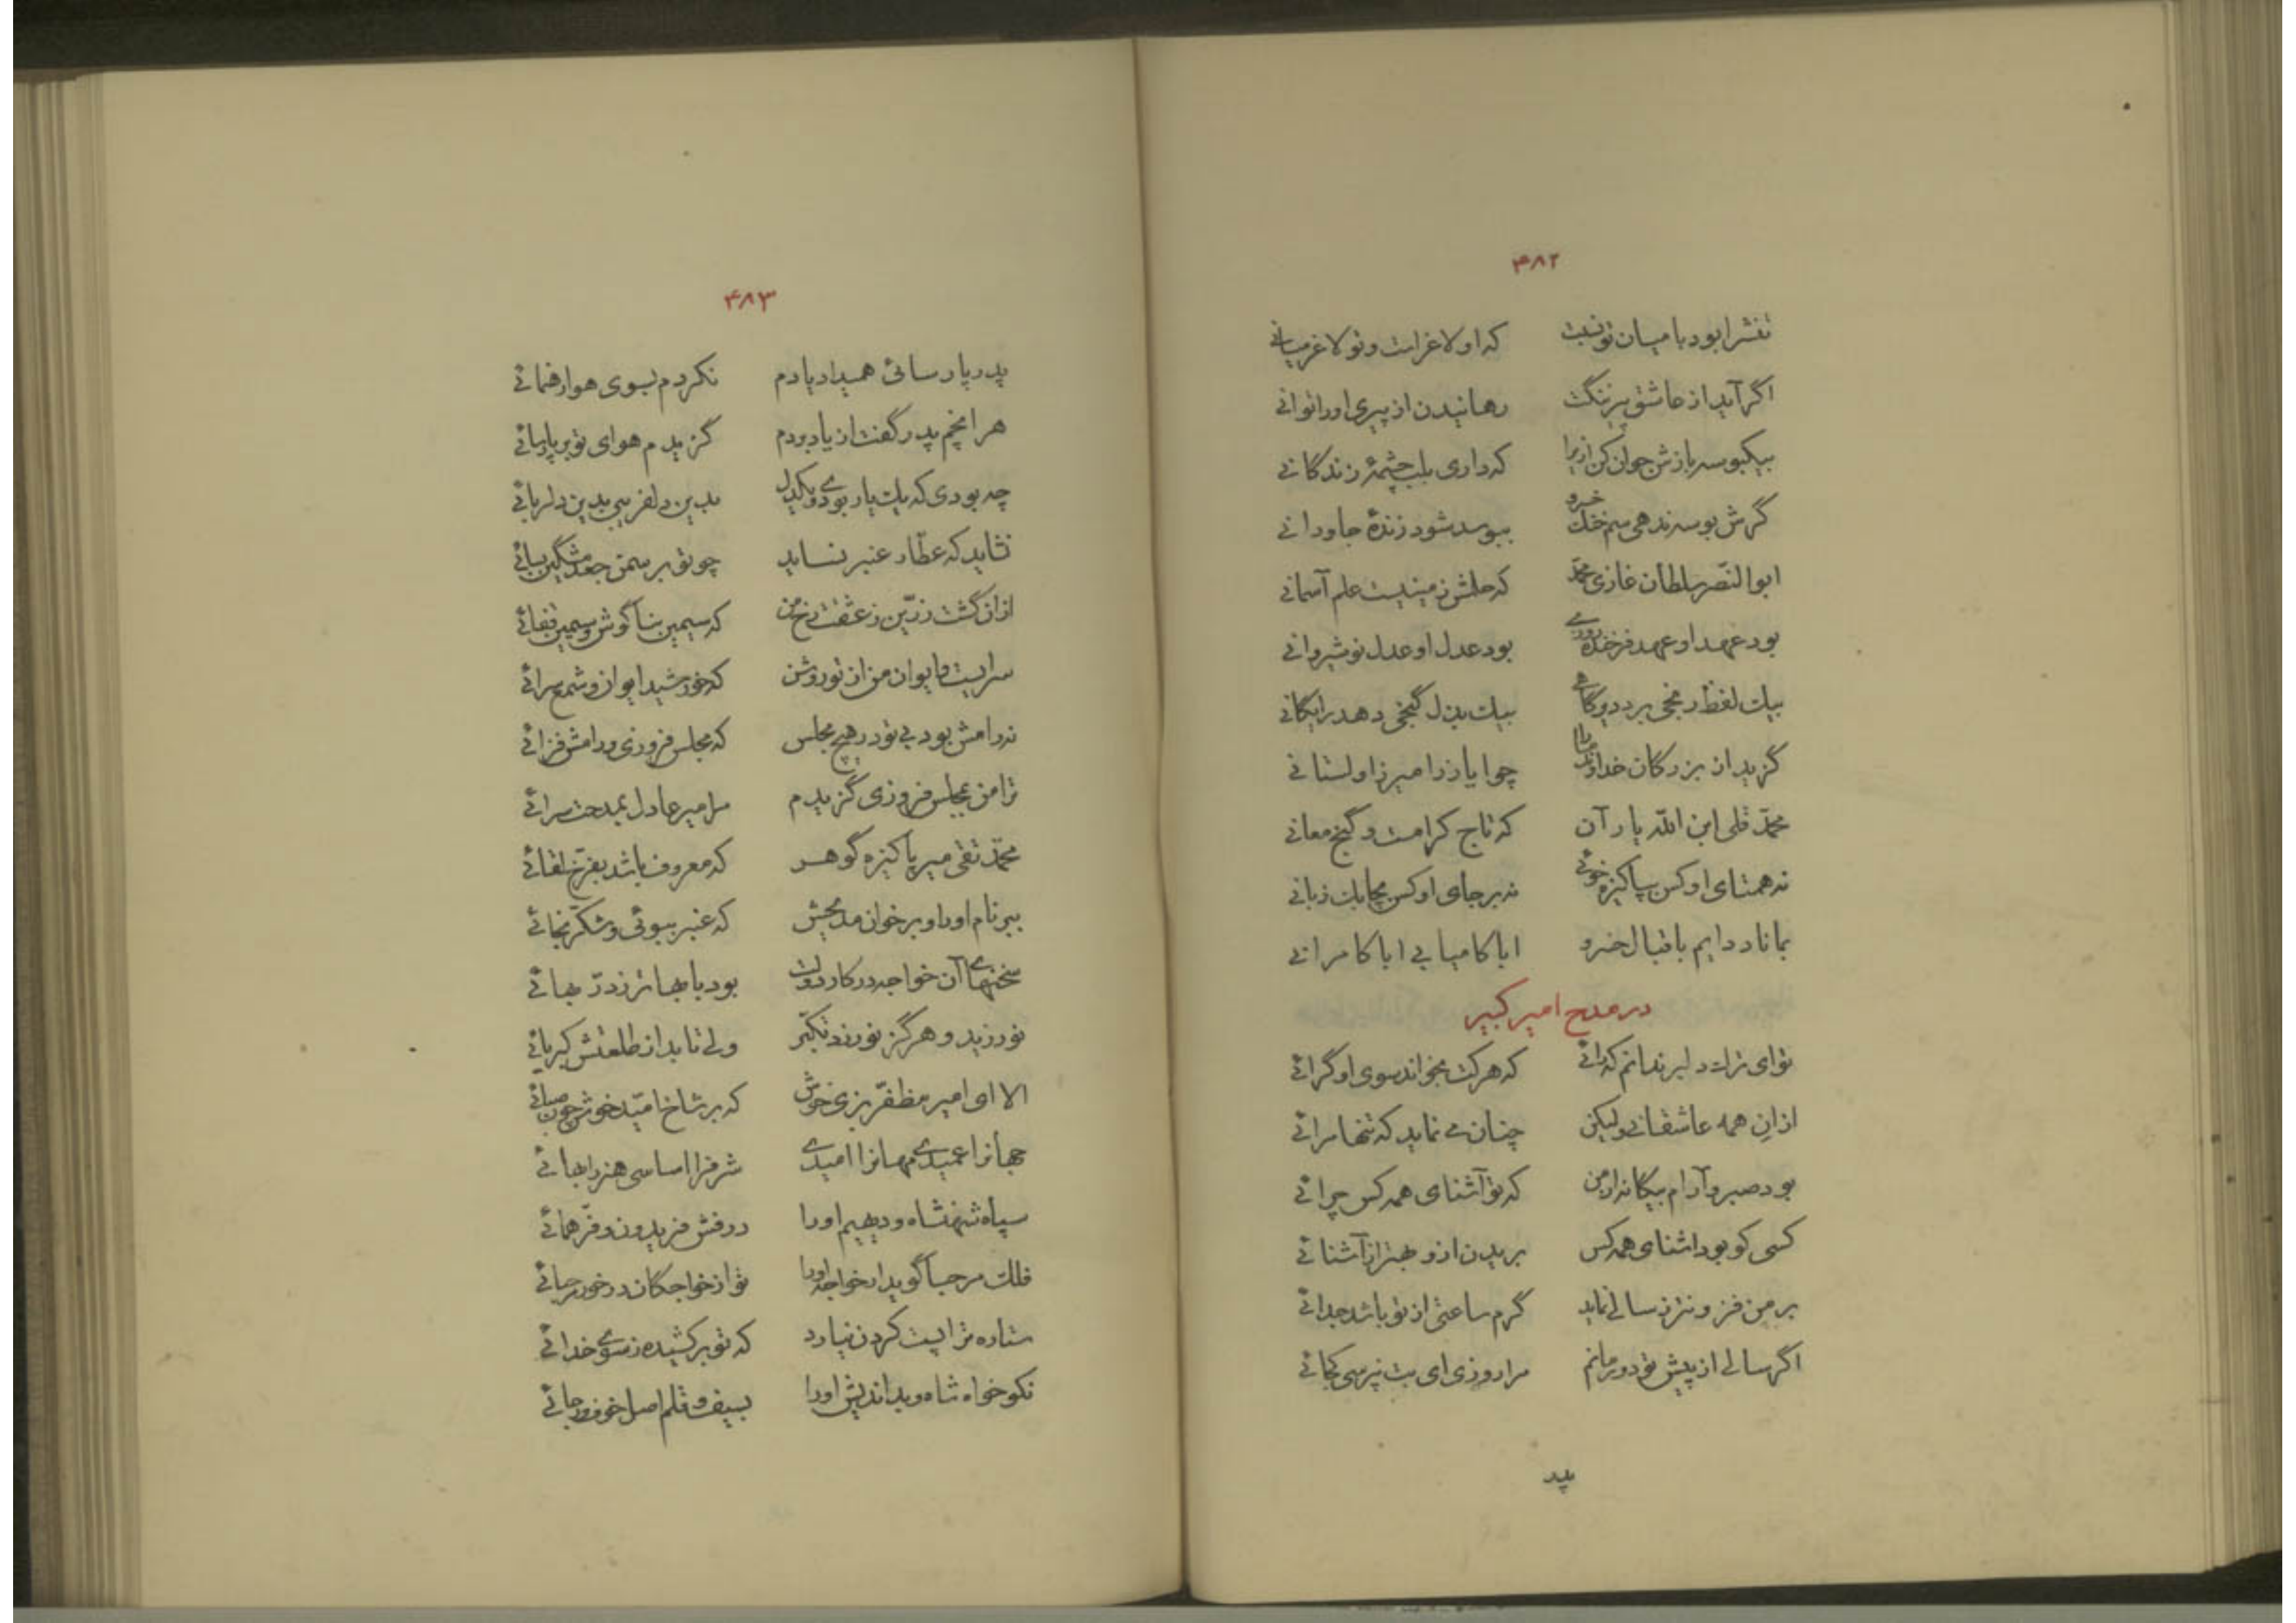 ۴۸۲
تنش را بود با میان تو نسبت که او لاغر است و تو لاغر میانی
اگر آید از عاشق پیر ننگت رهانیدن از پیری او را توانی
بیکبوسه بازش جوان کن ازیرا که داری بلب چشمهٔ زندگانی
گرش بوسه ندهی سم خنگ خسرو ببوسد شود زندهٔ جاودانی
ابوالنّصر سلطان غازی محمّد که حلمش زمینیست علم آسمانی
بود عهد او عهد فرخنده روزی بود عدل او عدل نوشیروانی
بیک لفظ رنجی برد دیرگاهی بیک بذل گنجی دهد رایگانی
گزید از بزرگان خداوند ما را چو ایاز را میر زاولستانی
محمّد قلی ابن اللّه یار آن که تاج کرامت و گنج معانی
نه همتای او کس بپاکیزه خوئی نه بر جای او کس بچابک زبانی
بماناد دایم باقبال خسرو ابا کامیابی ابا کامرانی
در مدح امیر کبیر
تو ای ترک دلبر ندانم کرائی که هر کت بخواند سوی او گرائی
از ان همه عاشقانی ولیکن چنان می نماید که تنها مرائی
بود صبر و آرام بیگانه از من که تو آشنای همه کس چرائی
کسی کو بود اشنای همه کس بریدن ازو بهتر از آشنائی
بر من فزونتر ز سالی نماید گرم ساعتی از تو باشد جدائی
اگر سالی از پیش تو دور مانم مرا روزی ای بت نپرسی کجائی
پد
۴۸۳
پدر پارسائی همیداد یادم نکردم بسوی هوا رهنمائی
هر انچم پدر گفت از یاد بردم گزیدم هوای تو بر پارسائی
چه بودی که یک یار بودی و یکدل بدین دلفریبی بدین دلربائی
نشاید که عطّار عنبر نساید چو تو بر سمن جعد مشگین بسائی
از ان گشت زرّین ز عشقت رخ من که سیمین بناگوش و سیمین قفائی
سرایست و ایوان من از تو روشن که خورشید ایوان و شمع سرائی
نه رامش بود بی تو در هیچ مجلس که مجلس فروزی و رامش فزائی
ترا من بمجلس فروزی گزیدم مرا میر عادل بمدحت سرائی
محمّد تقی میر پاکیزه گوهر که معروف باشد بفرّخ لقائی
ببر نام او را و برخوان مدیحش که عنبر ببوئی و شکّر بخائی
سخنهای آن خواجه در کار دولت بود با بها تر ز درّ بهائی
نورزید و هرگز نورزد تکبّر ولی تابد از طلعتش کبریائی
الا ای امیر مظفّر بزی خوش که بر شاخ امّید خوش چون صبائی
جهانرا عمیدی مهانرا امیدی شرفرا اساسی هنر را بهائی
سپاه شهنشاه و دیهیم او را درفش فریدون و فرّ همائی
فلک مرحبا گوید ان خواجه او را تو از خواجگان در خور مرحبائی
ستاره ترا پست کردن نیارد که تو برکشیده ز سوی خدائی
نکوخواه شاه و بداندیش او را بسیف و قلم اصل خوف و رجائی